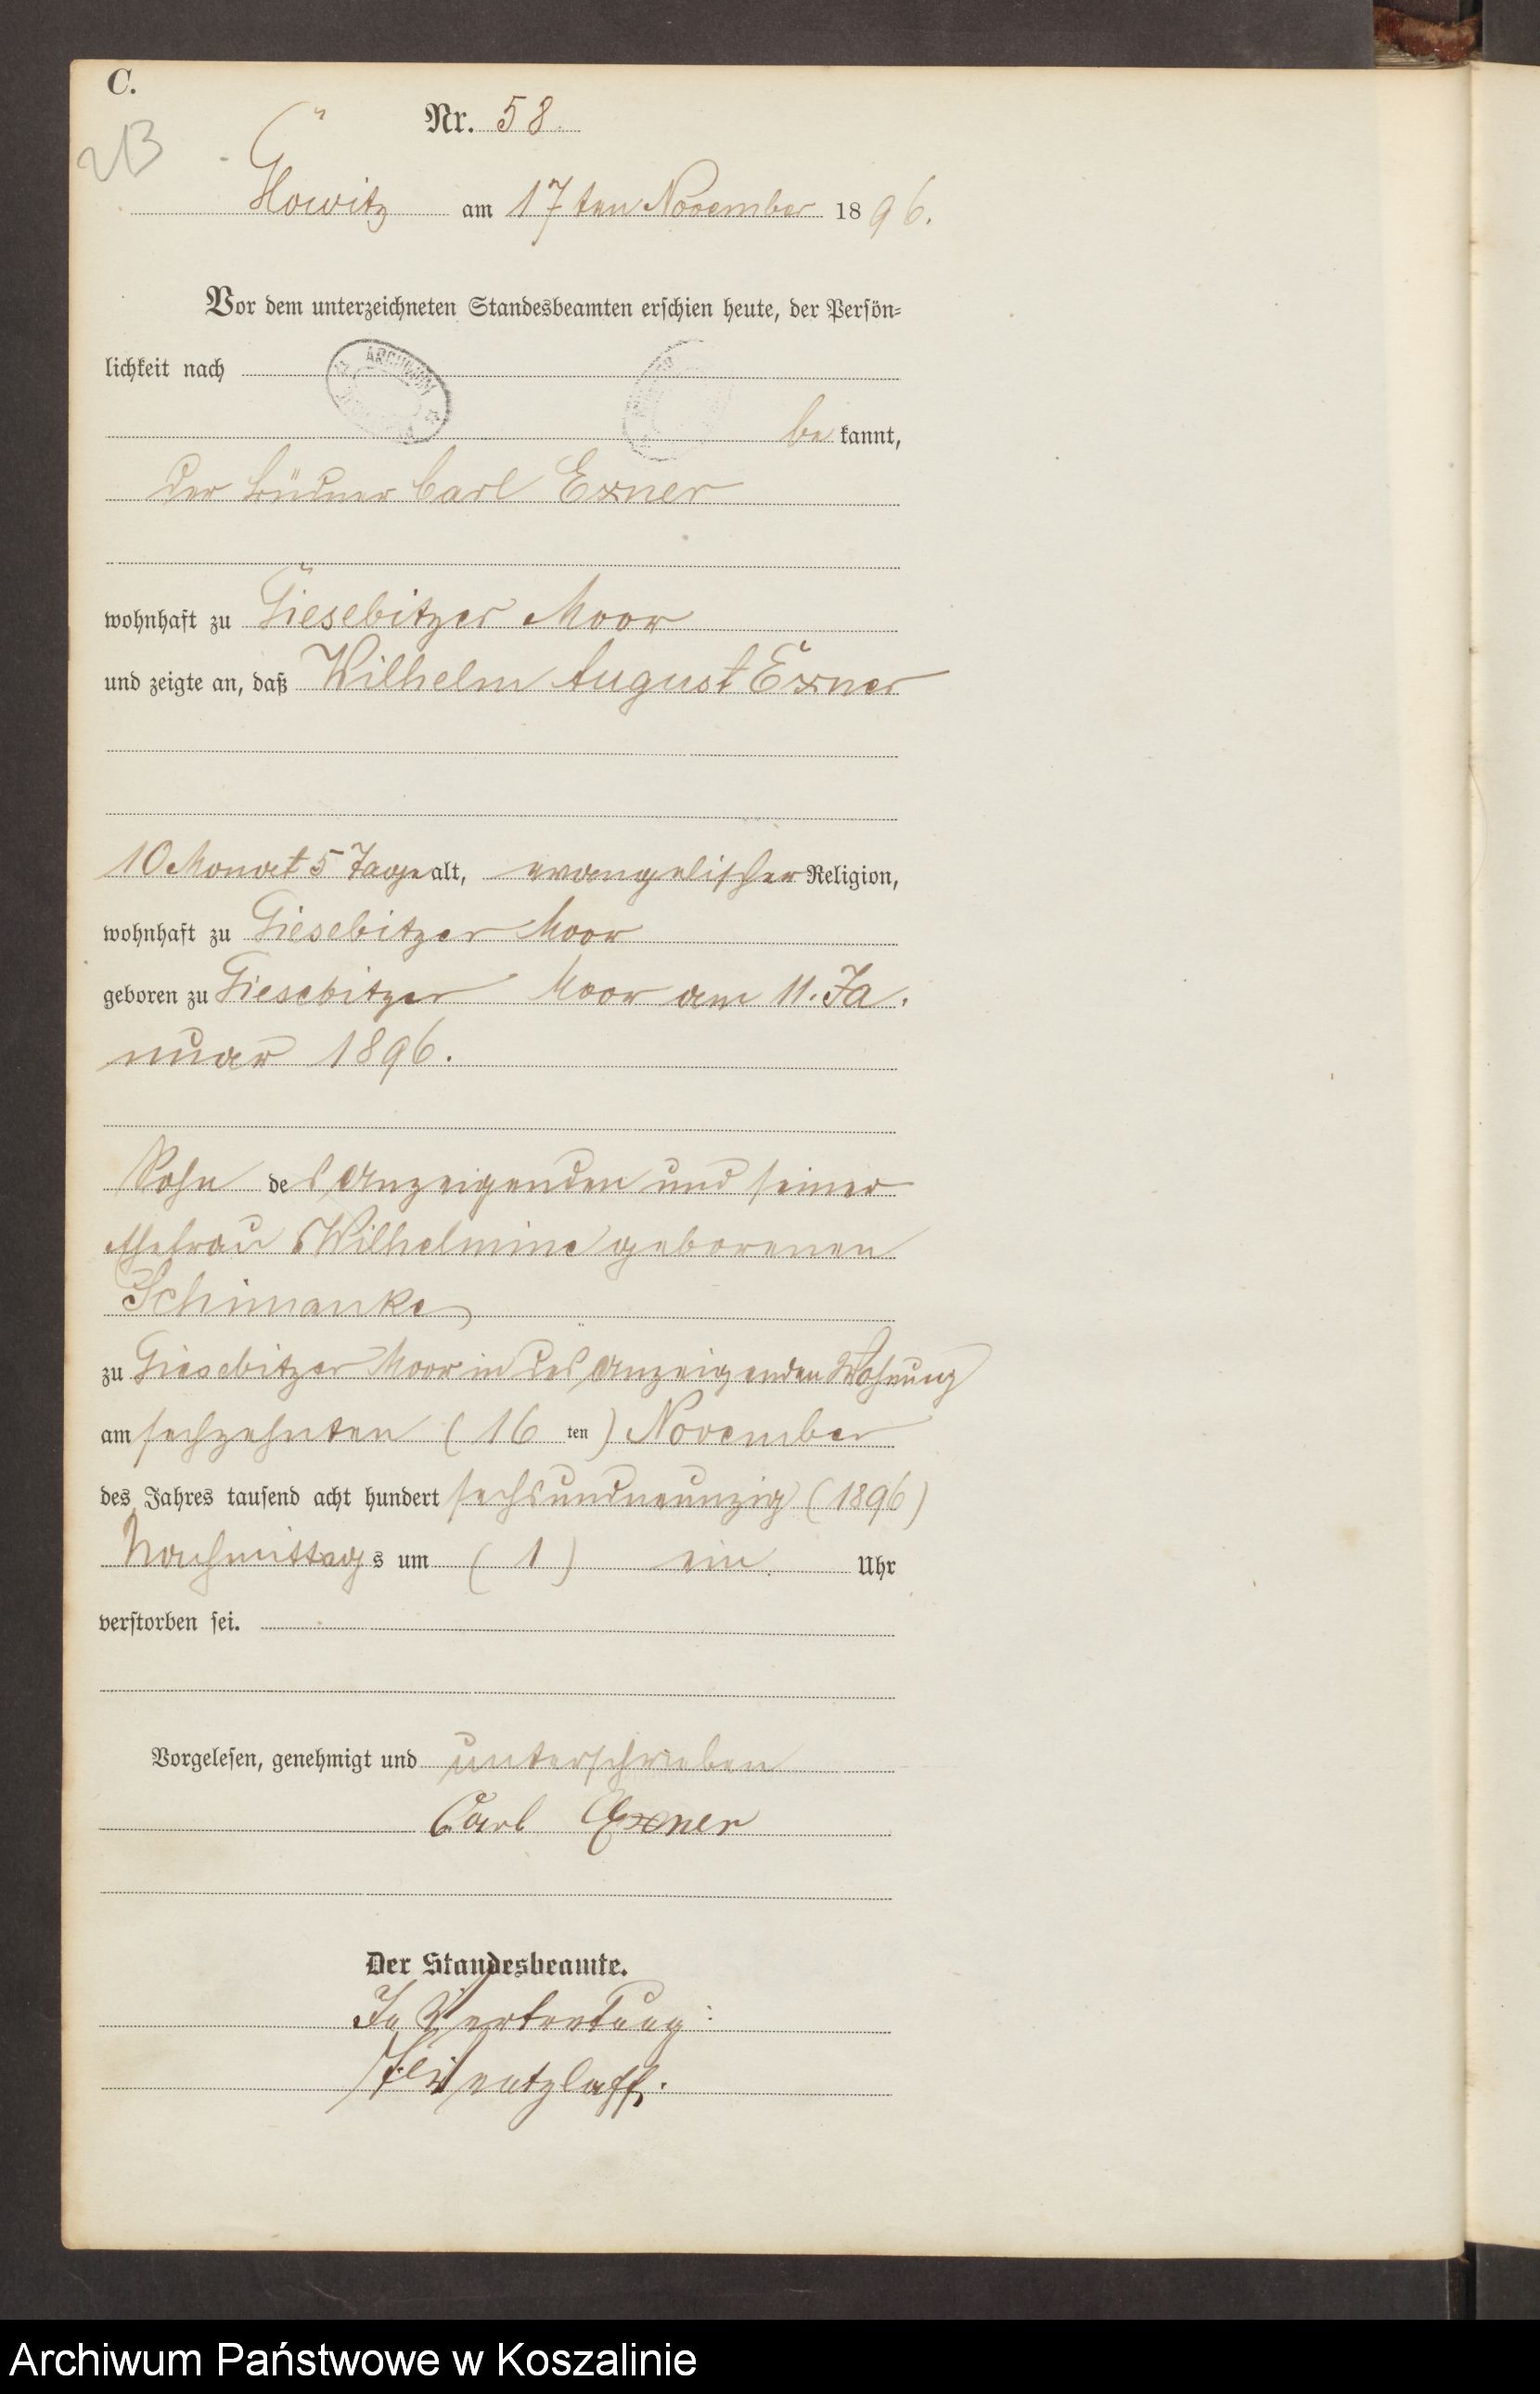 C.
Nr. 58.
213
Glowitz am 17ten November 1896.
Vor dem unterzeichneten Standesbeamten erschien heute, der Persön=
lichkeit nach
ARCHIWUM
be kannt,
der Büdner Carl Exner
wohnhaft zu Giesebitzer Moor
und zeigte an, daß Wilhelm August Exner
10 Monat 5 Tage alt, evangelischer Religion,
wohnhaft zu Giesebitzer Moor
geboren zu Giesebitzer Moor am 11. Ja.
nuar 1896.
Sohn des Anzeigenden und seiner
Ehefrau Wilhelmine geborenen
Schimanke
zu Giesebitzer Moor in des Anzeigenden Wohnung
am sechzehnten (16 ten) November
des Jahres tausend acht hundert sechsundneunzig (1896)
Nachmittags um (1) ein Uhr
verstorben sei.
Vorgelesen, genehmigt und unterschrieben
Carl Exner
Der Standesbeamte.
In Vertretung:
Wentzlaff.
Archiwum Państwowe w Koszalinie